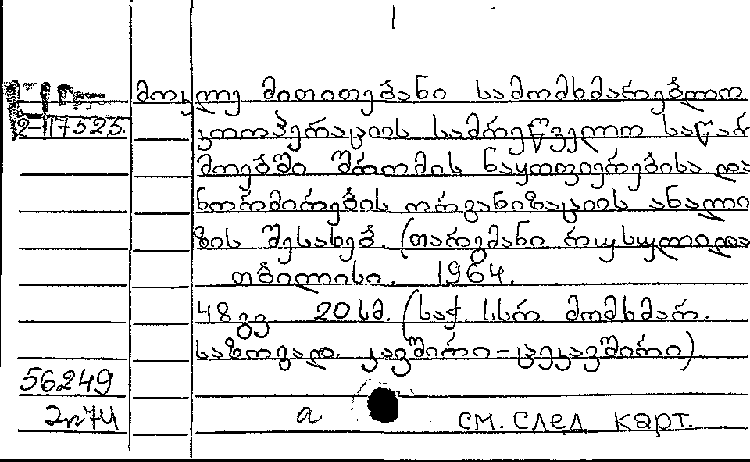 1
მოკლე მითითებანი სამომხმარებლო
2-117525. კოოპერაციის სამრეწველო საწარ
მოებში შრომის ნაყოფიერებისა და
ნორმირების ორგანიზაციის ანალი
ზის შესახებ. (თარგმანი რუსულიდა
თბილისი. 1964.
48 გვ. 20 სმ. (საქ. სსრ მომხმარ.
საზოგად. კავშირი-ცეკავშირი)
56249
a см. след карт.